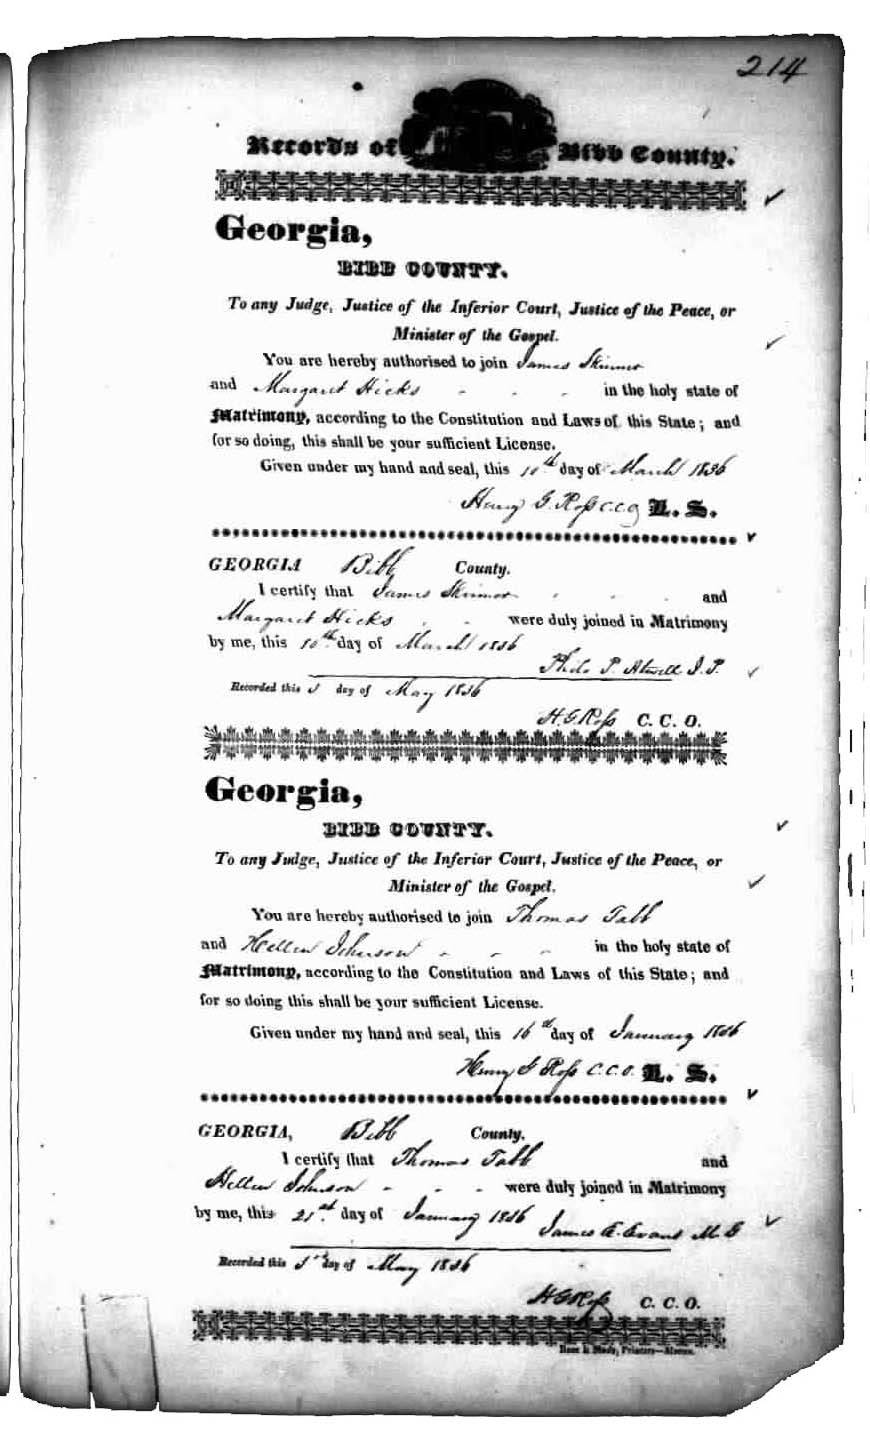 214
Records of Bibb County.
Georgia,
BIBB COUNTY.
To any Judge, Justice of the Inferior Court, Justice of the Peace, or
Minister of the Gospel.
You are hereby authorised to join James Skinner
and Margaret Hicks - - - in the holy state of
Matrimony, according to the Constitution and Laws of this State; and
for so doing, this shall be your sufficient License.
Given under my hand and seal, this 10th day of March 1836
Henry G. Ross C.C.O L. S.
GEORGIA Bibb County.
I certify that James Skinner - - - and
Margaret Hicks - - were duly joined in Matrimony
by me, this 10th day of March 1836
P. Atwell J. P.
Recorded this day of May 1836
H. G. Ross C. C. O.
Georgia,
BIBB COUNTY.
To any Judge, Justice of the Inferior Court, Justice of the Peace, or
Minister of the Gospel.
You are hereby authorised to join Thomas Tabb
and Hellen Johnson - - - in the holy state of
Matrimony, according to the Constitution and Laws of this State; and
for so doing this shall be your sufficient License.
Given under my hand and seal, this 16th day of January 1836
Henry G Ross C.C.O. L. S.
GEORGIA, Bibb County.
I certify that Thomas Tabb and
Hellen Johnson - - - were duly joined in Matrimony
by me, this 21st day of January 1836 James Evans M G
Recorded this day of May 1836
H G Ross C. C. O.
Printers—Macon.